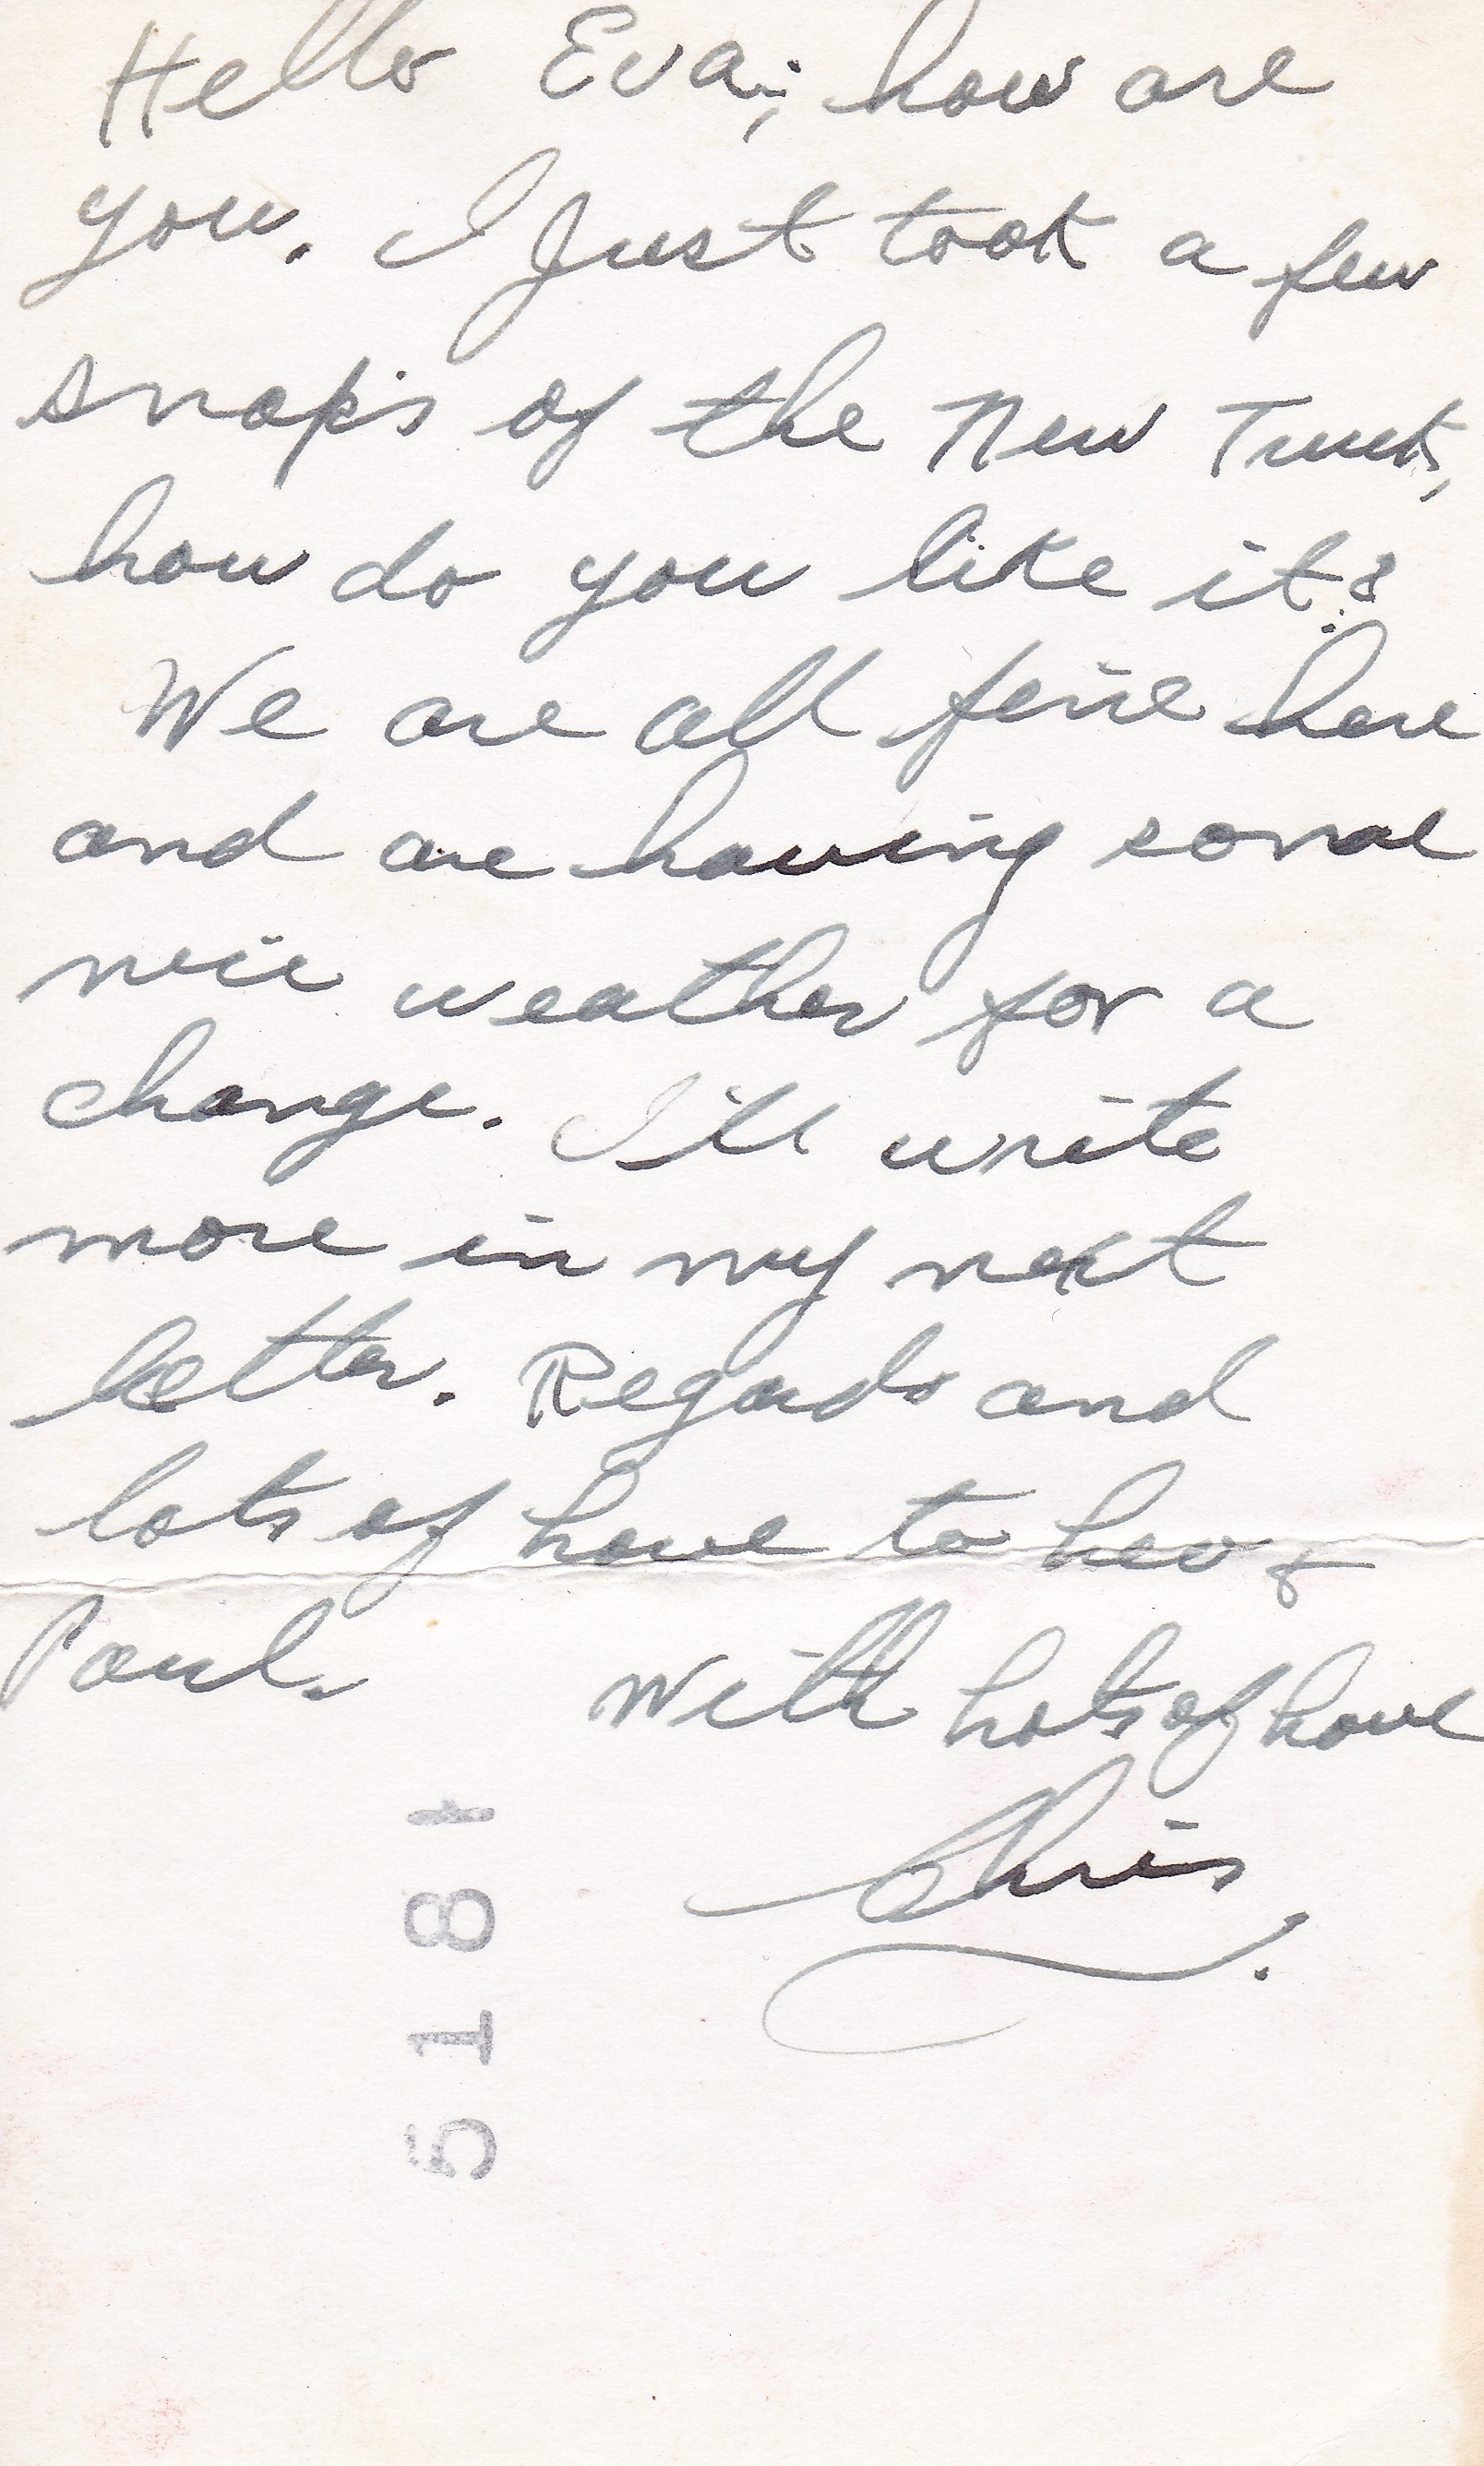 Hello Eva; how are
you. I Just took a few
snaps of the New Truck,
how do you like it?
We are all fine here
and are having some
nice weather for a
change. I'll write
more in my next
letter. Regards and
lots of Love to Leo &
Paul.
With Lots of Love
Chris.
5181